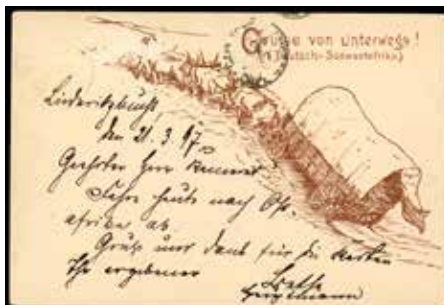 Grüsse von unterwegs!
(Deutsch-Südwestafrika)
Lüderitzbucht,
den 21. 3. 97.
Geehrter Herr
Fahre heute nach
afrika ab
Gruß und Dank für die Karten
Ihr ergebener